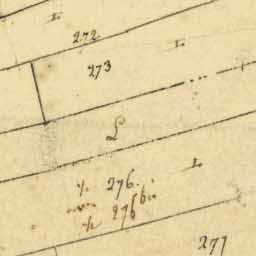 L
272
L
273
L
L
276.
276 bis
277